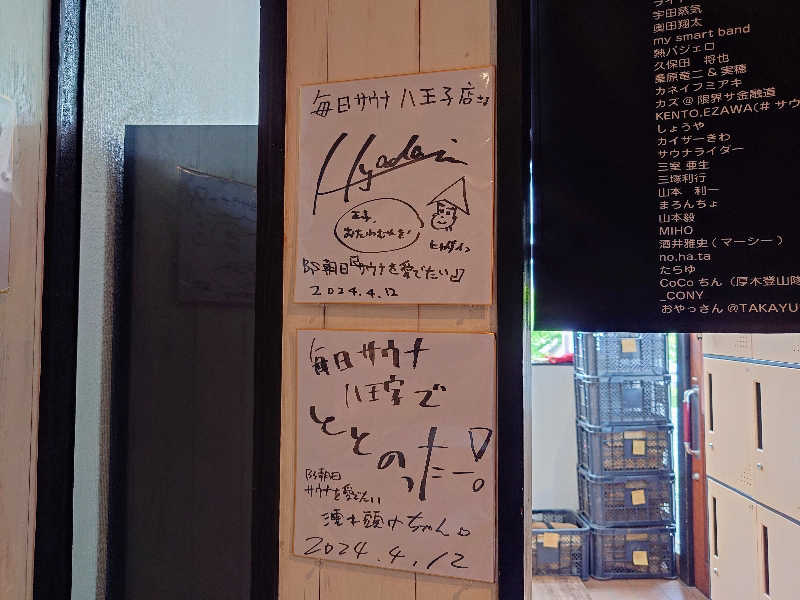 毎日サウナ 八王子店さま
Hyadain
王子、
おたわむれを!
ヒャダイン
BS朝日『サウナを愛でたい』
2024.4.12
毎日サウナ
八王子で
ととのったー!
BS朝日
サウナを愛でたい
濡れ頭巾ちゃん。
2024.4.12
宇田蒸気
奥田翔太
my smart band
熱パジェロ
久保田 将也
桑原竜二 & 実穂
カネイフミアキ
カズ@限界サ金融道
KENTO.EZAWA(# サウ
しょうや
カイザーきわ
サウナライダー
三室 亜生
三塚利行
山本 利一
まろんちょ
山本毅
MIHO
酒井雅史 ( マーシー )
no.ha.ta
たらゆ
CoCo ちん (厚木登山隊
_CONY
おやっさん @TAKAYU